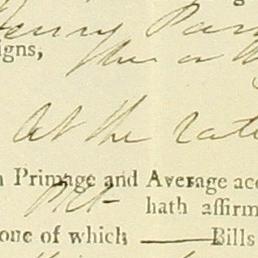 Henry Par
igns, their or th
At the rate
Primage and Average acc
hath affirm
one of which ——— Bills